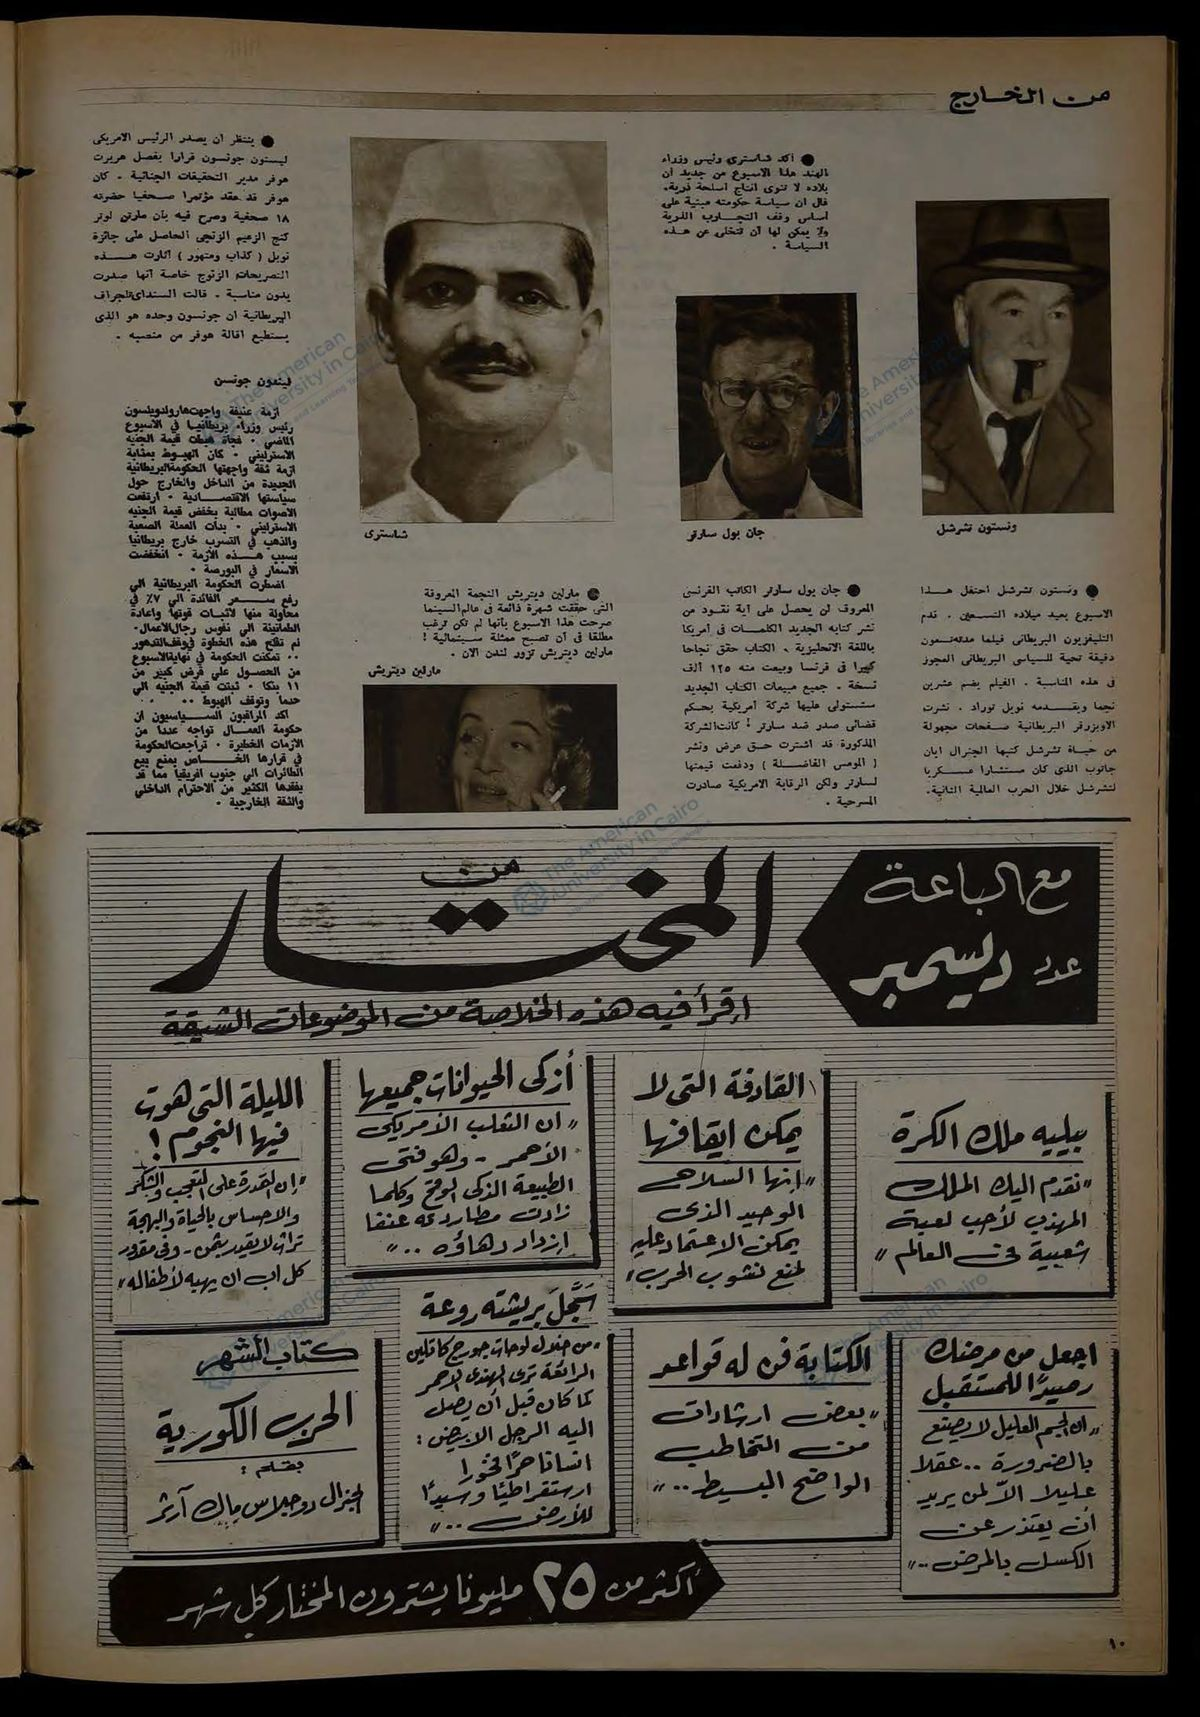 من الخارج
● أكد شاستري رئيس وزراء
الهند هذا الاسبوع من جديد ان
بلاده لا تنوى انتاج اسلحة ذرية.
قال ان سياسة حكومته مبنية على
اساس وقف التجارب الذرية
ولا يمكن لها أن تتخلى عن هذه
السياسة .
ونستون تشرشل
● ونستون تشرشل احتفل هذا
الاسبوع بعيد ميلاده التسعين . قدم
التليفزيون البريطانى فيلما مدته تسعون
دقيقة تحية للسياسى البريطانى العجوز
فى هذه المناسبة . الفيلم يضم عشرين
نجما ويقدمه نويل توراد . نشرت
الاوبزرفر البريطانية صفحات مجهولة
من حياة تشرشل كتبها الجنرال ايان
جاتوب الذى كان مستشارا عسكريا
لتشرشل خلال الحرب العالمية الثانية.
جان بول سارتر
● جان بول سارتر الكاتب الفرنسى
المعروف لن يحصل على أية نقود من
نشر كتابه الجديد الكلمات فى أمريكا
باللغة الانجليزية . الكتاب حقق نجاحا
كبيرا فى فرنسا وبيعت منه ١٢٥ ألف
نسخة . جميع مبيعات الكتاب الجديد
ستستولى عليها شركة أمريكية بحكم
قضائى صدر ضد سارتر ! كانت الشركة
المذكورة قد اشترت حق عرض ونشر
( المومس الفاضلة ) ودفعت قيمتها
لسارتر ولكن الرقابة الامريكية صادرت
المسرحية .
شاستري
● مارلين ديتريش النجمة المعروفة
التى حققت شهرة فائقة فى عالم السينما
صرحت هذا الاسبوع بأنها لم تكن ترغب
مطلقا فى أن تصبح ممثلة سينمائية !
مارلين ديتريش تزور لندن الآن .
مارلين ديتريش
● ينتظر ان يصدر الرئيس الامريكى
ليستون جونسون قرارا بفصل هربرت
هوفر مدير التحقيقات الجنائية . كان
هوفر قد عقد مؤتمرا صحفيا حضرته
١٨ صحفية وصرح فيه بأن مارتن لوثر
كنج الزعيم الزنجى الحاصل على جائزة
نوبل ( كذاب ومتهور ) أثارت هذه
التصريحات الزنوج خاصة أنها صدرت
بدون مناسبة . قالت السنداى تلجراف
البريطانية ان جونسون وحده هو الذى
يستطيع اقالة هوفر من منصبه .
ليندون جونسن
ازمة عنيفة واجهت هارولد ويلسون
رئيس وزراء بريطانيا في الاسبوع
الماضي . فجأة هبطت قيمة الجنيه
الاسترليني . كان الهبوط بمثابة
ازمة ثقة واجهتها الحكومة البريطانية
الجديدة من الداخل والخارج حول
سياستها الاقتصادية . ارتفعت
الاصوات مطالبة بخفض قيمة الجنيه
الاسترليني . بدأت العملة الصعبة
والذهب في التسرب خارج بريطانيا
بسبب هذه الازمة . انخفضت
الاسعار في البورصة .
اضطرت الحكومة البريطانية الى
رفع سعر الفائدة الى ٧٪ في
محاولة منها لاثبات قوتها واعادة
الطمأنينة الى نفوس رجال الاعمال.
لم تفلح هذه الخطوة في وقف التدهور
.. تمكنت الحكومة في نهاية الاسبوع
من الحصول على قرض كبير من
١١ بنكا . ثبتت قيمة الجنيه الى
حدما وتوقف الهبوط ..
أكد المراقبون السياسيون ان
حكومة العمال تواجه عددا من
الازمات الخطيرة . تراجعت الحكومة
في قرارها الخاص بمنع بيع
الطائرات الى جنوب افريقيا مما قد
يفقدها الكثير من الاحترام الداخلي
والثقة الخارجية .
مع الباعة
عدد ديسمبر
المختار
من
اقرأ فيه هذه الخلاصة من الموضوعات الشيقة
بيليه ملك الكرة
"نقدم اليك الملك
المهذب لأحب لعبة
شعبية في العالم"
القاذفة التى لا
يمكن ايقافها
"إنها السلاح
الوحيد الذى
يمكن الاعتماد عليه
لمنع نشوب الحرب"
أزكى الحيوانات جميعها
"ان الثعلب الأمريكى
الأحمر - وهو فتى
الطبيعة الذكى الوقح وكلما
زادت مطاردته عنفا
إزداد دهاؤه .."
الليلة التى هوت
فيها النجوم !
"إن القدرة على التعجب والشكر
والاحساس بالحياة والبهجة
تراث لا يقدر بثمن - وفى مقدور
كل اب ان يهبه لأطفاله"
اجعل من مرضك
رصيدًا للمستقبل
"ان الجسم العليل لا يصنع
بالضرورة .. عقلا
عليلا إلا لمن يريد
أن يعتذر عن
الكسل بالمرض .."
الكتابة فن له قواعد
"بعض ارشادات
من التخاطب
الواضح البسيط .."
سجّل بريشته روعة
"من خلال لوحات جورج كاتلين
الرائعة ترى الهندى الاحمر
كما كان قبل أن يصل
اليه الرجل الابيض :
انسانا حرًا فخورا
ارستقراطيًا وسيدًا
للأرض .."
كتاب الشهر
الحرب الكورية
بقلم :
الجنرال دوجلاس ماك آرثر
أكثر من ٢٥ مليونا يشترون المختار كل شهر
١٠
The American
University in Cairo
Libraries and Learning Technologies